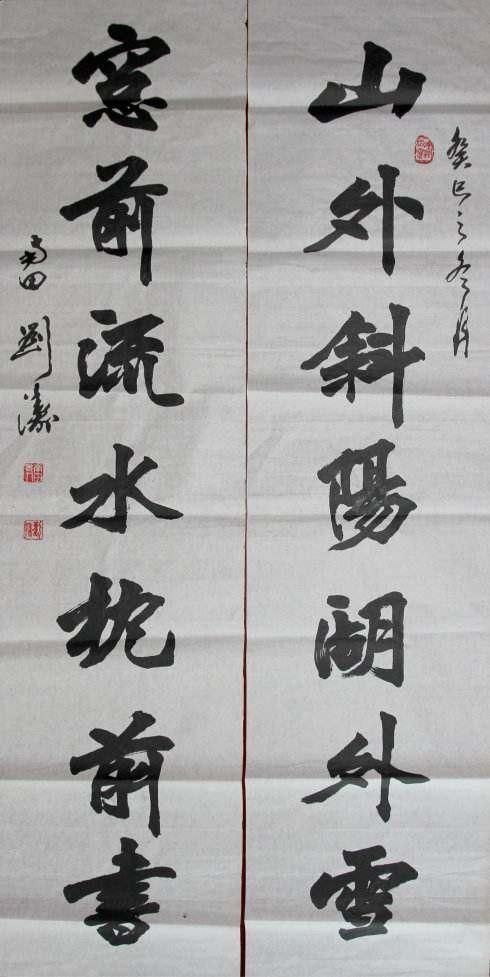 癸巳之冬月
山外斜陽湖外雪
窓前流水枕前書
莆田